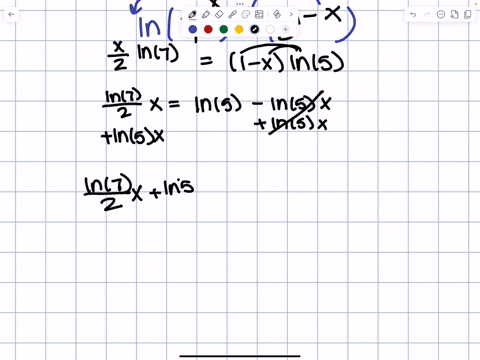 ln( ) - x )
x/2 ln(7) = (1-x) ln(5)
ln(7)/2 x = ln(5) - ln(5) x
+ln(5)x + ln(5) x
ln(7)/2 x + ln5